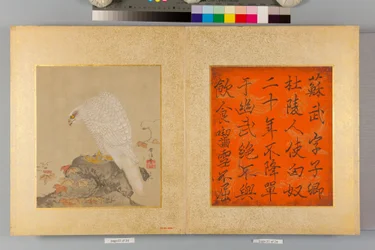 蘇武字子卿
杜陵人使匈奴
二十年不降單
于幽武絶不與
飲食嚙雪不屈